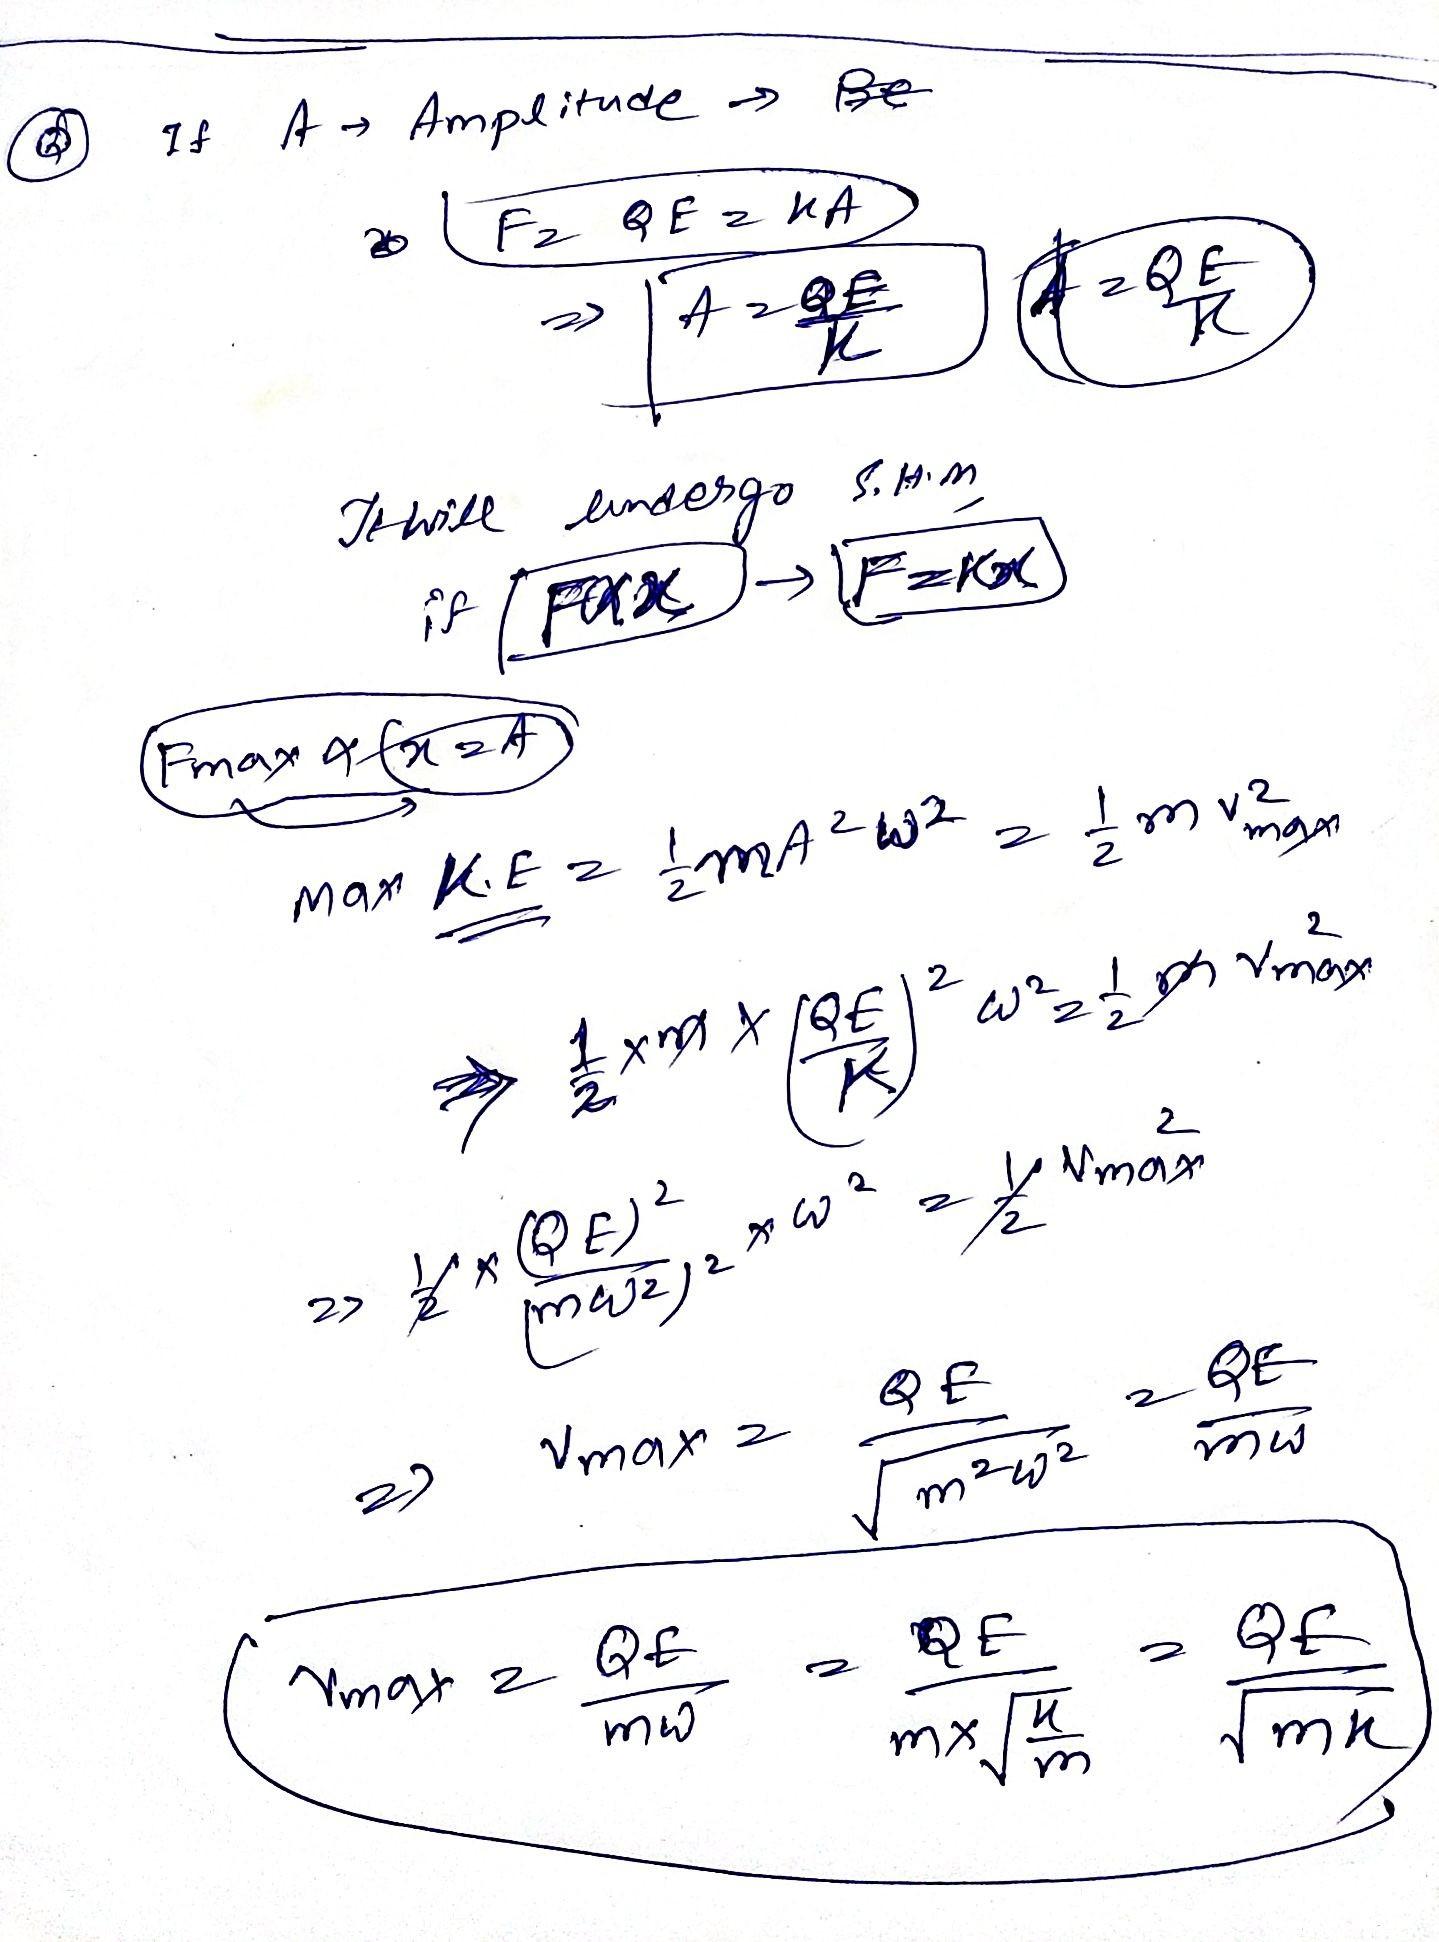 Q If A → Amplitude → Be
F = QE = KA
⇒ A = QE/K A = QE/K
It will undergo S.H.M
if F∝x → F = Kx
Fmax ∝ (x = A)
Max K.E = 1/2 mA²ω² = 1/2 m v²max
⇒ 1/2 × m × (QE/K)² ω² = 1/2 m Vmax²
⇒ 1/2 × (QE)²/(mω²)² × ω² = 1/2 Vmax²
⇒ Vmax = QE/√m²ω² = QE/mω
Vmax = QE/mω = QE/m×√K/m = QE/√mK